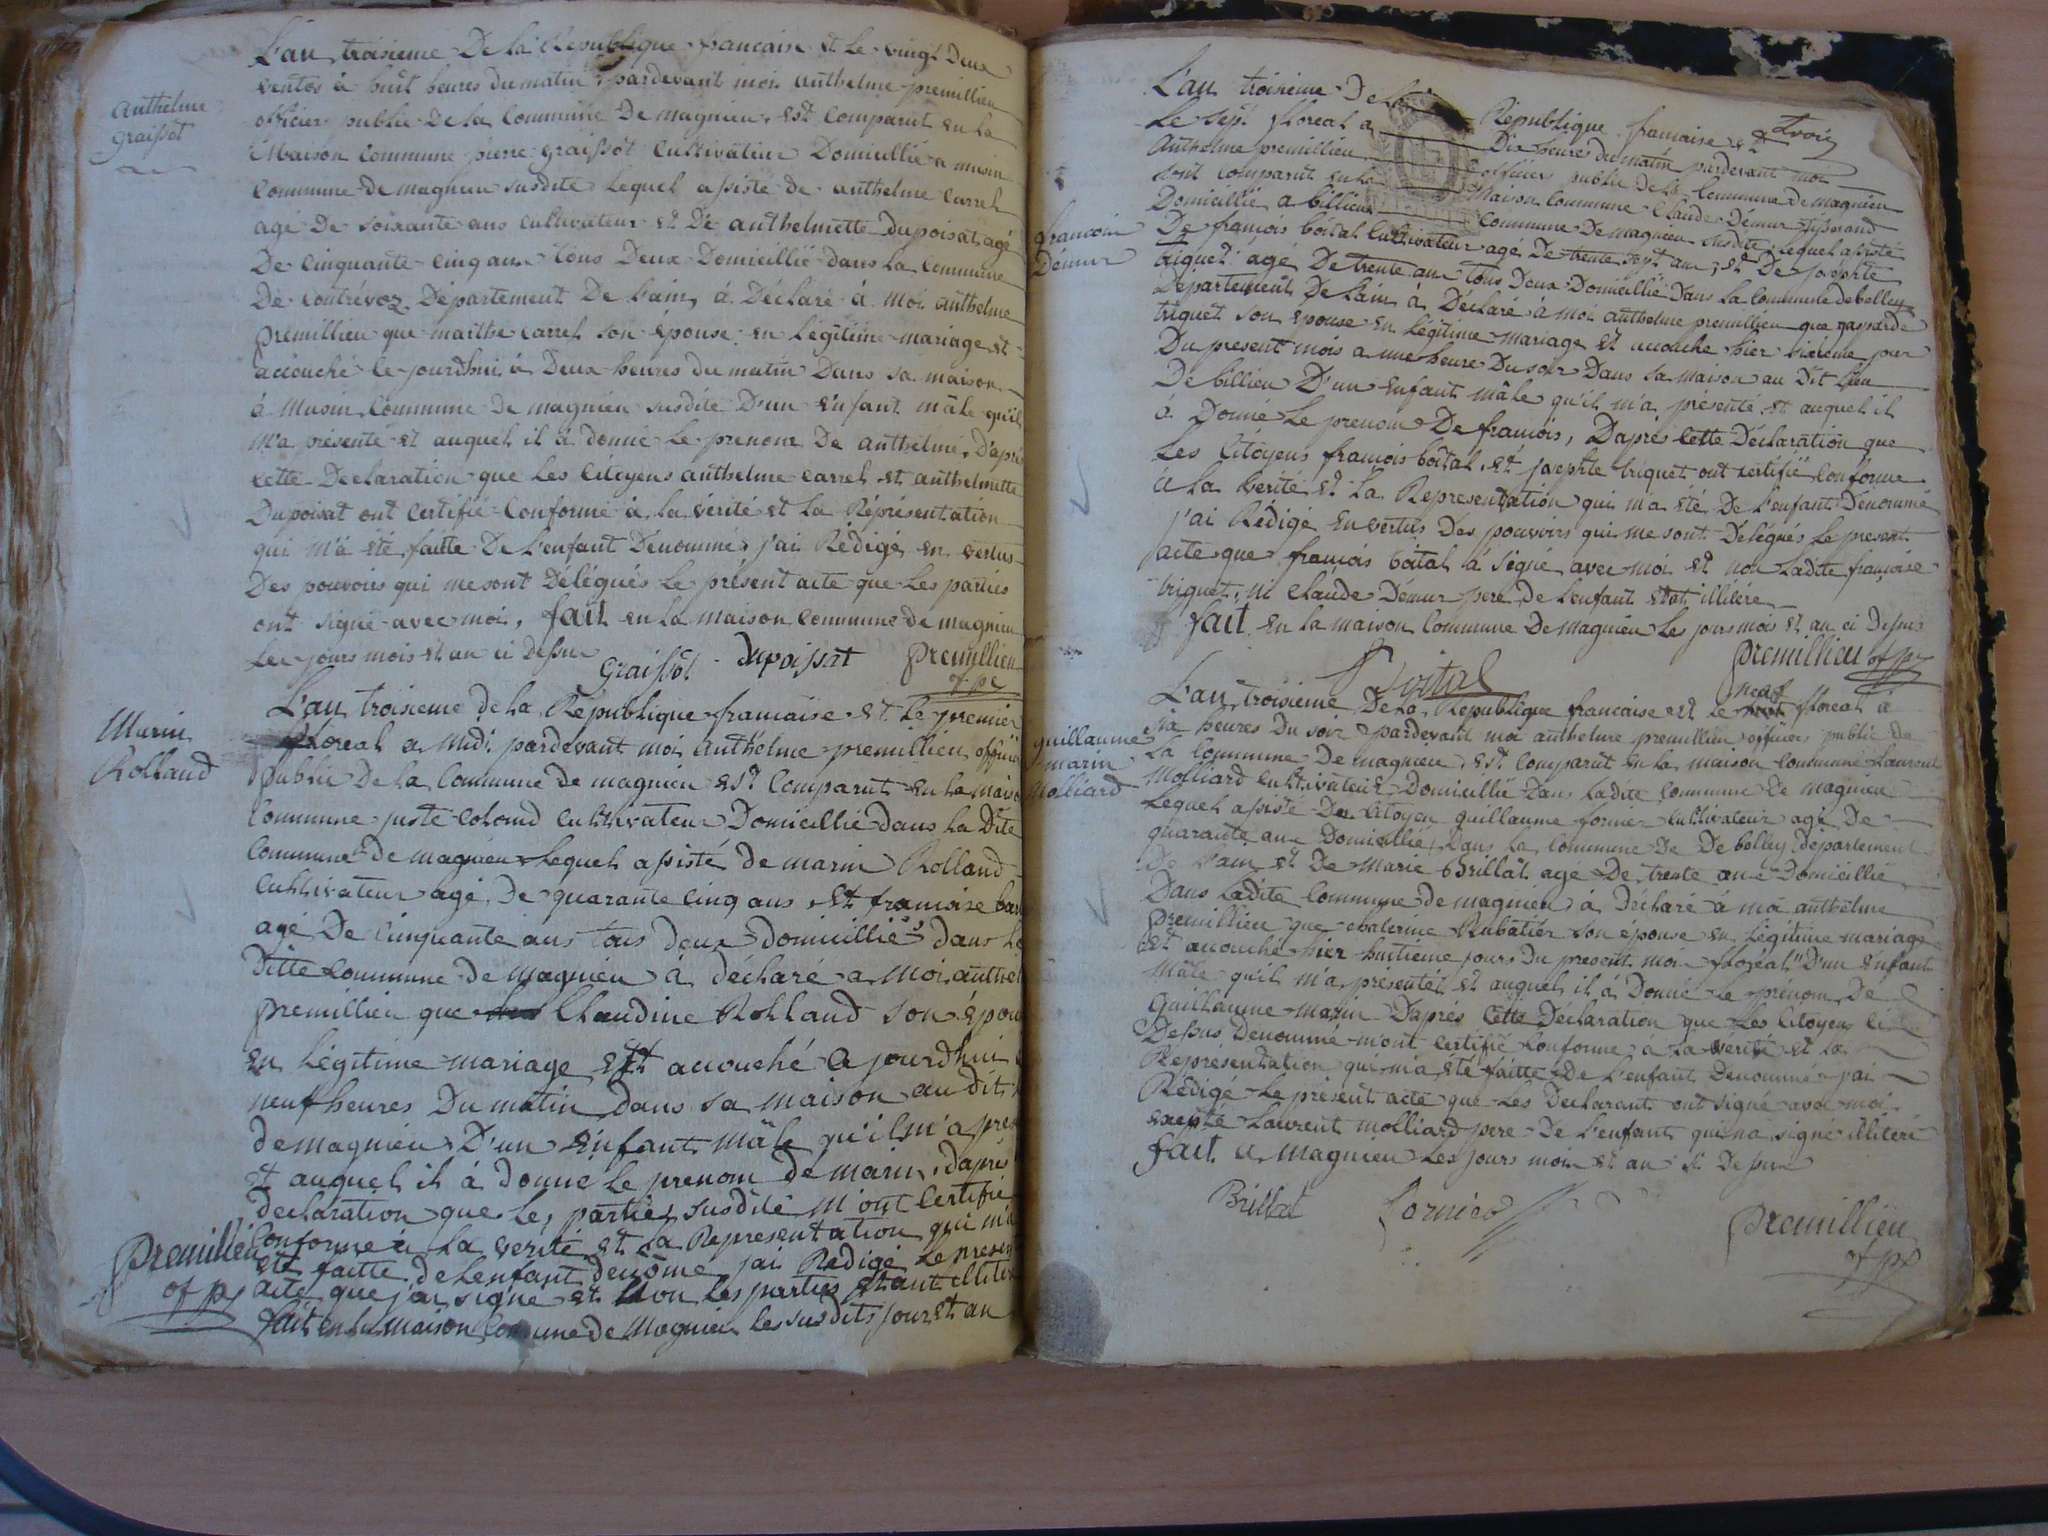 Anthelme
graissot
L'an troisieme De la Republique francaise et le vingt Deux
ventos à huit heures du matin pardevant moi anthelme premillieu
officier public De la Commune De magnieu, est Comparut en la
Maison Commune pierre graissot Cultivateur Domicillié a musin
Commune de magnieu susdite lequel assisté de anthelme carrel
agé De soixante ans cultivateur et De anthelmette dupoisat agé
De cinquante cinq ans tous Deux Domicillié dans la Commune
De Contrévoz Département De l'ain, à Déclaré à moi anthelme
premillieu que marthe carrel son épouse en Légitime mariage et
accouché le jourdhui à Deux heures du matin Dans sa maison
à Musin Commune De magnieu susdite D'un enfant mâle qu'il
M'a présenté et auquel il à donné le prenom De anthelme, D'après
cette Declaration que Les Citoyens anthelme carrel et anthelmette
Dupoisat ont Certifié Conforme à la vérité et la Réprésentation
qui m'à été faitte De l'enfant Denommé j'ai Rédigé en vertus
Des pouvoirs qui me sont Délégués Le présent acte que Les parties
ont signé avec moi, fait en la maison Commune de magnieu
Les jours mois et an ci dessus
graissot dupoissat premillieu
of. pc
Marin
Rolland
L'an troisieme de la Republique francaise et le premier
floreal a midi pardevant moi anthelme premillieu officie
public De la Commune de magnieu est Comparut en la maiso
Commune juste colomd cultivateur Domicillié dans la Dite
Commune de magnieu lequel assisté de marin Rolland
Cultivateur agé De quarante cinq ans et francoise
agé De Cinquante ans tous deux domicilliés dans la
Ditte commune de magnieu à déclaré a moi anthel
premillieu que Claudine Rolland son épou
en Légitime mariage est accouché a jourdhui
neuf heures Du matin dans sa maison au dit
de magnieu D'un enfant mâle qu'il m'a pres
et auquel il à donné le prenom de marin, daprès
declaration que les parties susdite m'ont Certifié
Conforme a la verité et la Representation qui m'a
été faitte de Lenfant denomé jai Redigé le presen
acte que j'ai signé et non les parties étant illiter
fait en la maison Commune de Magnieu les susdits jour et an
Premillieu
of. p
trois
francois
Demur
L'an troisieme De la Republique francaise et
Le sept floreal a Dix heures du matin pardevant moi
Anthelme premillieu officier public de la Commune de magnieu
sont comparut en la Maison Commune Claude Démur tisserand
Domicillié a billieu Commune De magnieu susdite, lequel assisté
De françois boital Cultivateur agé De trente sept ans, et De josephte
triquet agé De trente ans tous Deux Domicillié Dans la Commune de belley
Département De l'ain à Déclaré à moi anthelme premillieu que gasparde
triquet son épouse en Légitime mariage et accouché hier sixieme jour
Du present mois a une heure Du soir Dans sa maison au Dit lieu
De billieu D'un enfant mâle qu'il m'a présenté et auquel il
à Donné Le prenom De francois, D'après Cette Déclaration que
Les Citoyens francois boital et josephte triquet ont certifié Conforme
à la verité et la Representation qui m'a été De l'enfant Denommé
j'ai Rédigé en vertus Des pouvoirs qui me sont Délégués Le present
acte que francois boital à signé avec moi et non Ladite françoise
triquet, ni Claude Démur pere De lenfant etat illitéré
fait en la maison Commune De magnieu Les jours mois et an ci dessus
Boital premillieu of. p
guillaume
marin
Molliard
L'an troisieme De la Republique francaise et le neuf floreal à
six heures Du soir pardevant moi anthelme premillieu officier public de
La Commune De magnieu, est Comparut en la maison Commune Laurent
Molliard cultivateur Domicillié dans ladite Commune De magnieu
Lequel assisté Du Citoyen guillaume fornier cultivateur agé De
quarante ans Domicillié Dans la Commune De De belley departement
De l'ain et De Marie Brillat agé De trente ans Domicillié
Dans Ladite Commune de magnieu à Déclaré à moi anthelme
premillieu que catterine Rubatier son épouse en Légitime mariage
est accouché hier huitieme jours Du present mois floréal D'un enfant
Mâle qu'il m'a présenté et auquel il à Donné Le prénom De
Guillaume marin D'après Cette Déclaration que Les Citoyens ci
Dessus Denommé m'ont certifié conforme à la verité et la
Représentation qui m'a été faitte De l'enfant Denommé j'ai
Rédigé Le présent acte que Les Declarants ont signé avec moi
excepté Laurent molliard pere De l'enfant qui n'a signé illitéré
fait a magnieu Les jours mois et an ci Dessus
Brillat fornier premillieu
of. p